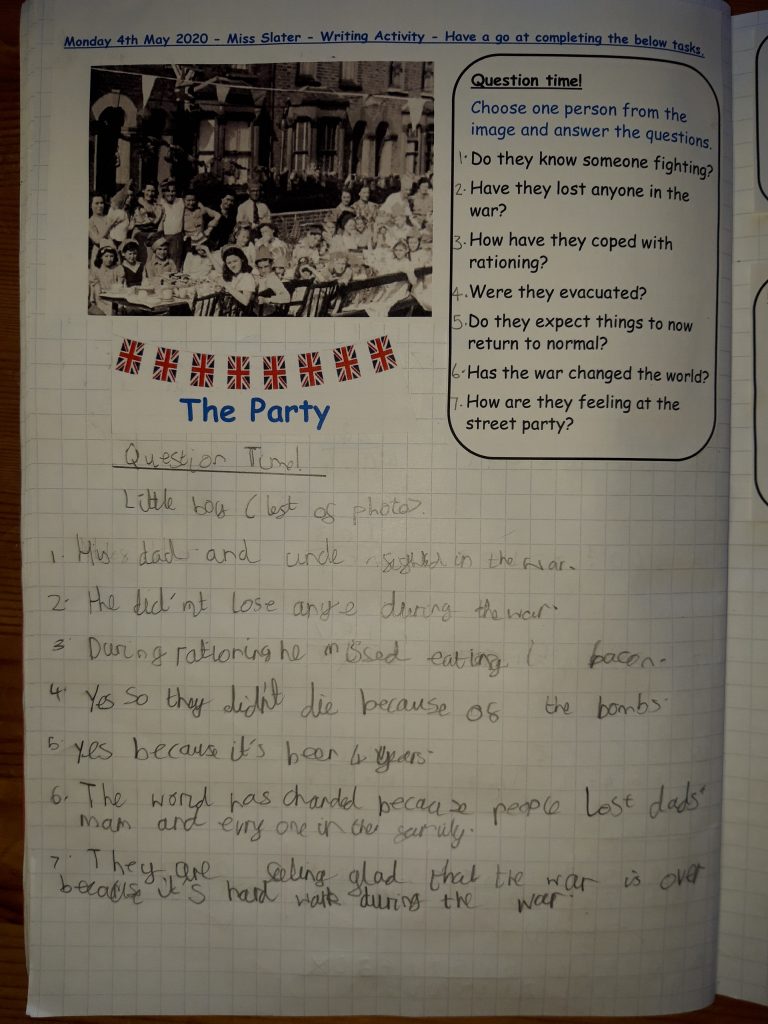 Monday 4th May 2020 - Miss Slater - Writing Activity - Have a go at completing the below tasks.
Question time!
Choose one person from the
image and answer the questions.
1. Do they know someone fighting?
2. Have they lost anyone in the
war?
3. How have they coped with
rationing?
4. Were they evacuated?
5. Do they expect things to now
return to normal?
6. Has the war changed the world?
7. How are they feeling at the
street party?
The Party
Question Time!
Little boy (left of photo).
1. His dad and uncle in the war.
2. He did'nt lose during the war.
3. During rationing he missed eating bacon.
4. Yes so they didn't die because of the bombs.
5. yes because it's been 4 years.
6. The has because people lost dads'
mam and evry one in the family.
7. They are feeling glad that the war is over
because it's hard during the war.